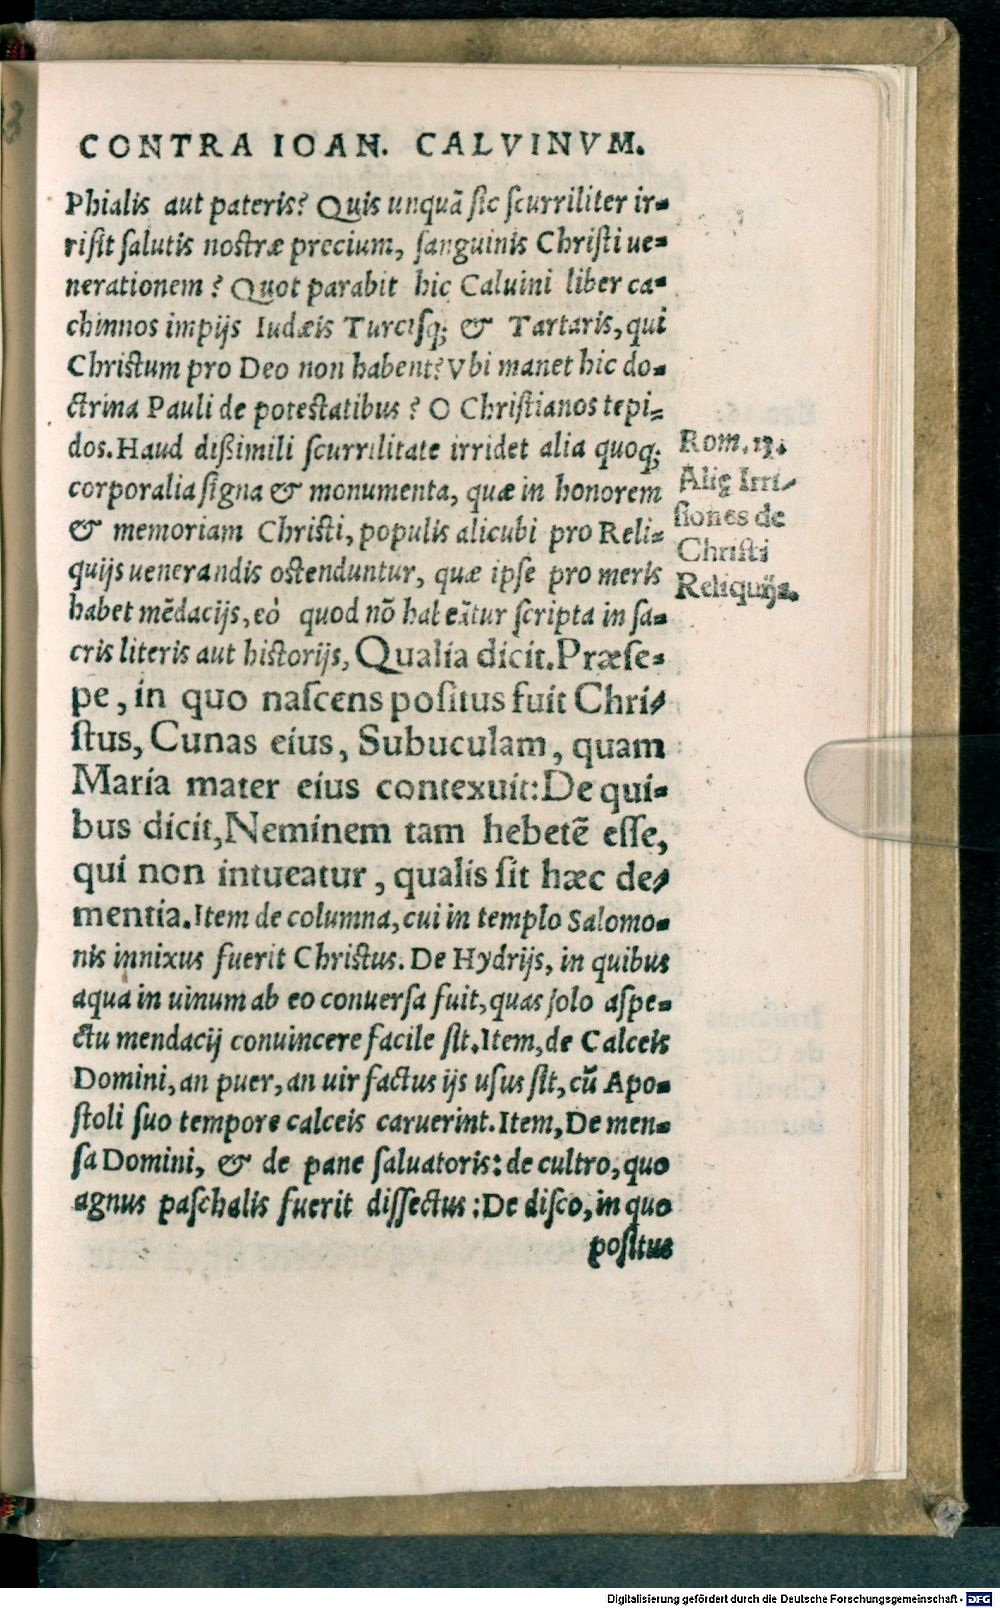 CONTRA IOAN. CALVINVM.
Phialis aut pateris? Quis unquā sic scurriliter ir-
risit salutis nostræ precium, sanguinis Christi ue-
nerationem? Quot parabit hic Caluini liber ca-
chinnos impijs Iudæis Turcisq; & Tartaris, qui
Christum pro Deo non habent? Vbi manet hic do-
ctrina Pauli de potestatibus? O Christianos tepi-
dos. Haud dißimili scurrilitate irridet alia quoq;
corporalia signa & monumenta, quæ in honorem
& memoriam Christi, populis alicubi pro Reli-
quijs uenerandis ostenduntur, quæ ipse pro meris
habet mēdacijs, eò quod nō habeātur scripta in sa-
cris literis aut historijs, Qualia dicit. Præse-
pe, in quo nascens positus fuit Chri-
stus, Cunas eius, Subuculam, quam
Maria mater eius contexuit: De qui-
bus dicit, Neminem tam hebetē esse,
qui non intueatur, qualis sit hæc de-
mentia. Item de columna, cui in templo Salomo-
nis innixus fuerit Christus. De Hydrijs, in quibus
aqua in uinum ab eo conuersa fuit, quas solo aspe-
ctu mendacij conuincere facile sit. Item, de Calceis
Domini, an puer, an uir factus ijs usus sit, cū Apo-
stoli suo tempore calceis caruerint. Item, De men-
sa Domini, & de pane saluatoris: de cultro, quo
agnus paschalis fuerit dissectus: De disco, in quo
positus
Rom. 13.
Alię Irri-
siones de
Christi
Reliquijs.
Digitalisierung gefördert durch die Deutsche Forschungsgemeinschaft - DFG